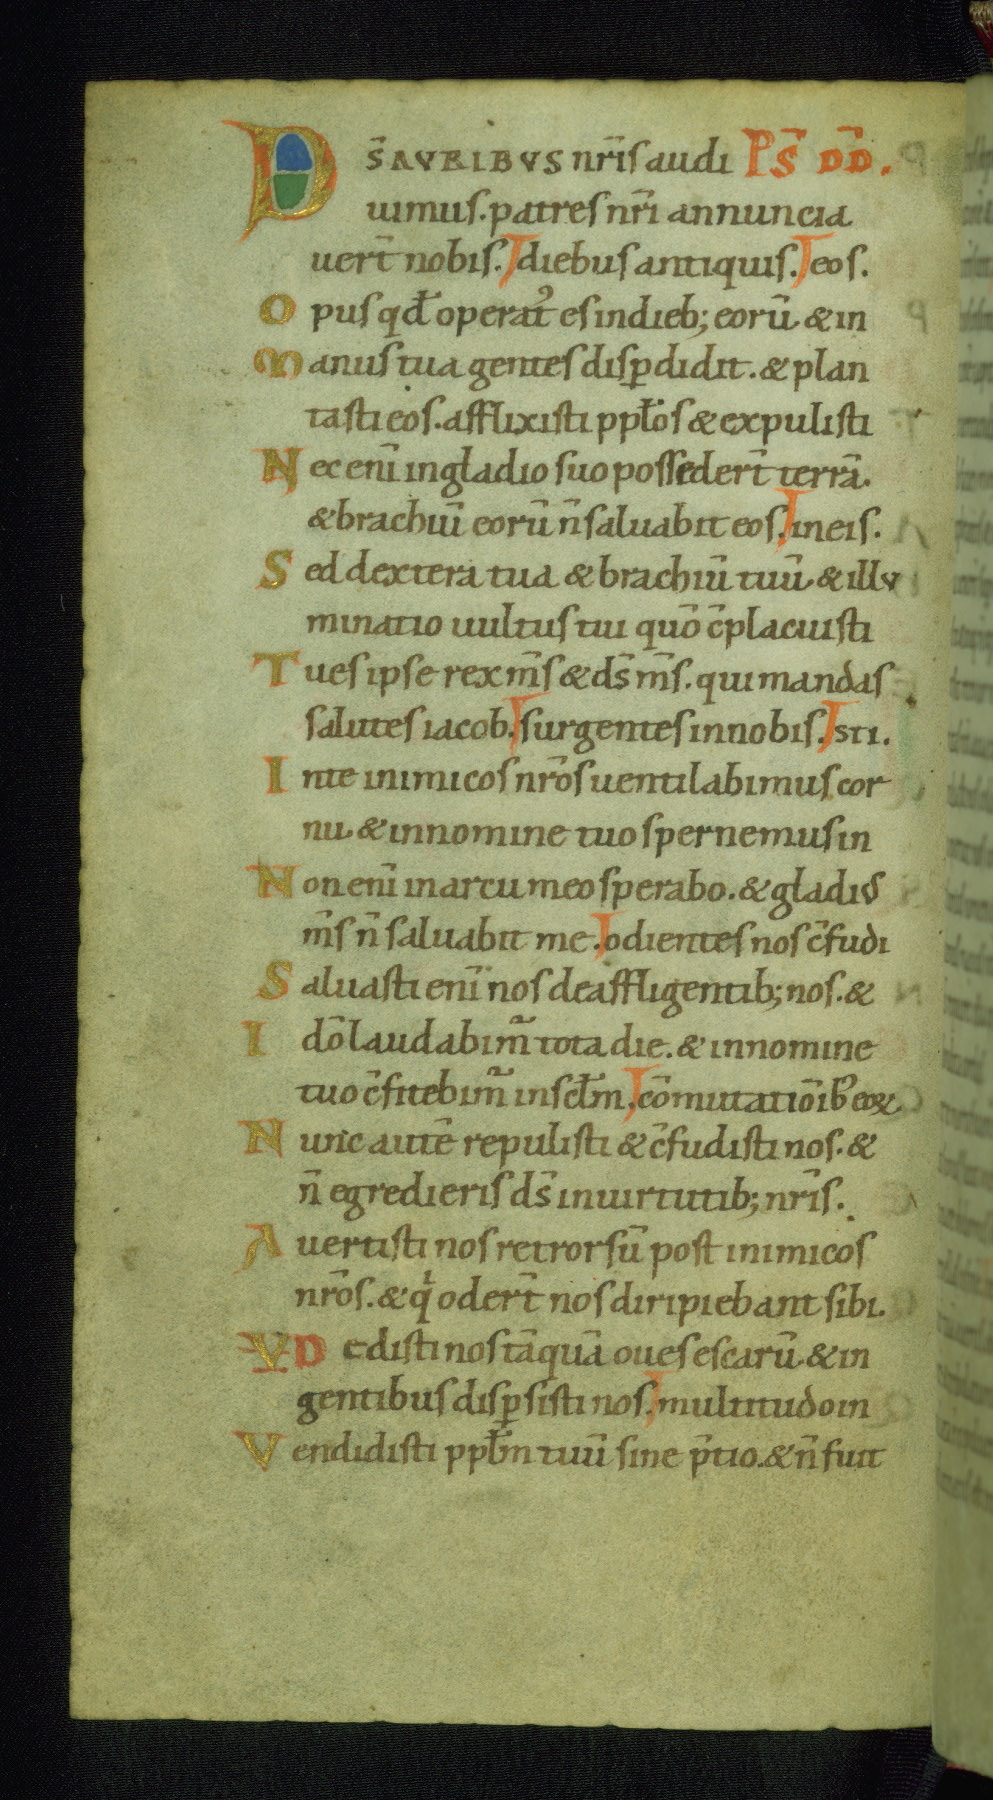 DS̄ AVRIBVS nr̄is audi PS̄ DD̄.
uimus. patres nr̄i annuncia
uer̄t nobis. I diebus antiquis. I eos.
Opus qđ operat᾽ es in dieb; eorū & in
Manus tua gentes disꝑdidit. & plan
tasti eos. afflixisti ppłos & expulisti
Nec enī in gladio suo posseder̄t terrā.
& brachiū eorū n̄ saluabit eos. I in eis.
Sed dextera tua & brachiū tuū & illu
minatio uultus tui quō c̄placuisti
Tu es ipse rex m̄s & ds̄ m̄s. qui mandas
salutes iacob. I surgentes in nobis. I sti.
In te inimicos nr̄os uentilabimus cor
nu & in nomine tuo spernemus in
Non enī in arcu meo sperabo. & gladius
m̄s n̄ saluabit me. I odientes nos c̄fudi
Saluasti enī nos de affligentib; nos. &
I dō laudabim᷒ tota die. & in nomine
tuo c̄fitebim᷒ in scł̄m. I cōmutatiōib; eoꝝ
Nunc autē repulisti & c̄fudisti nos. &
n̄ egredieris ds̄ in uirtutib; nr̄is.
Auertisti nos retrorsū post inimicos
nr̄os. & qⁱ oder̄t nos diripiebant sibi.
VDedisti nos tāquā oues escarū & in
gentibus disꝑsisti nos. I multitudo in
Vendidisti ppłm tuū sine p̄tio. & n̄ fuit